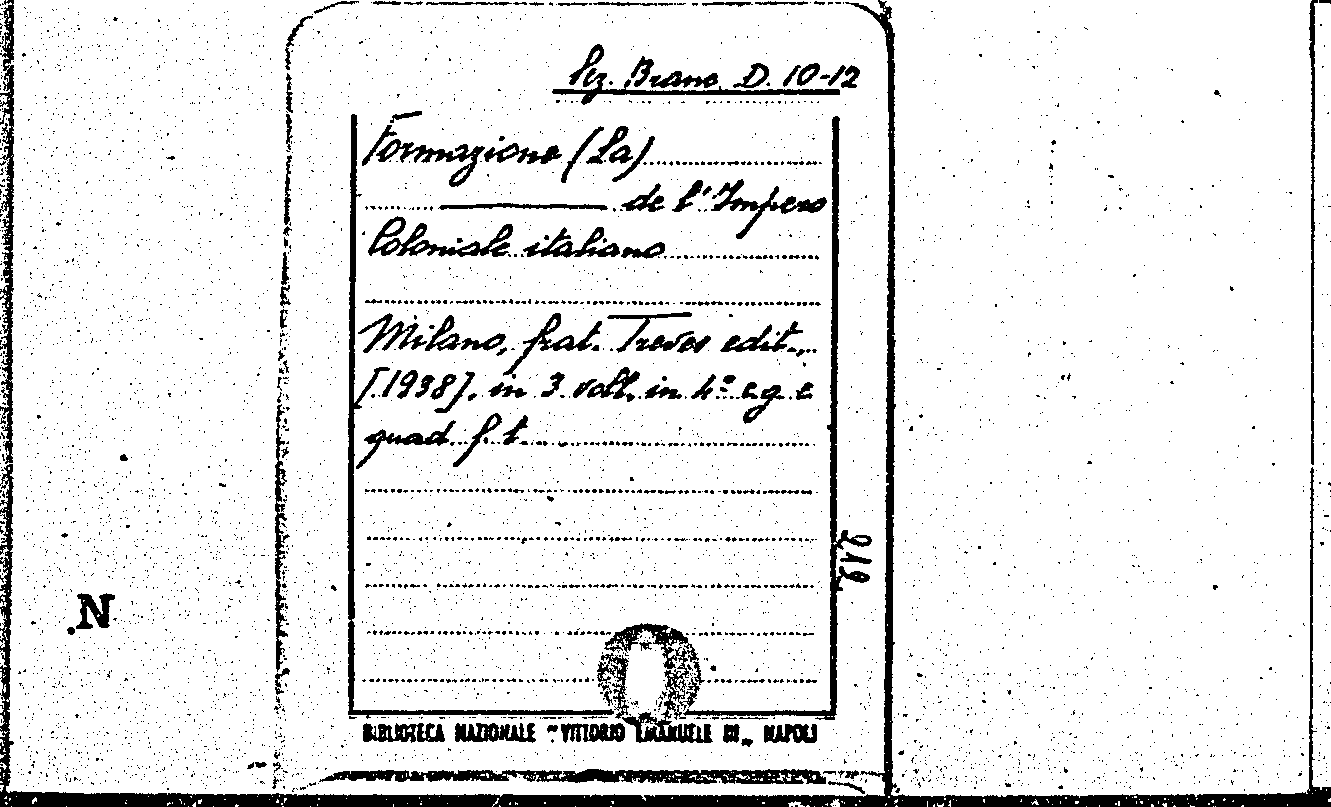 Sez. Branc. D. 10-12
Formazione (La)
de l'Impero
Coloniale italiano
Milano, frat. Treves edit.,
[1938], in 3 voll. in 4° c.g e
quad f. t.
212
N.
BIBLIOTECA NAZIONALE "VITTORIO EMANUELE III„ NAPOLI